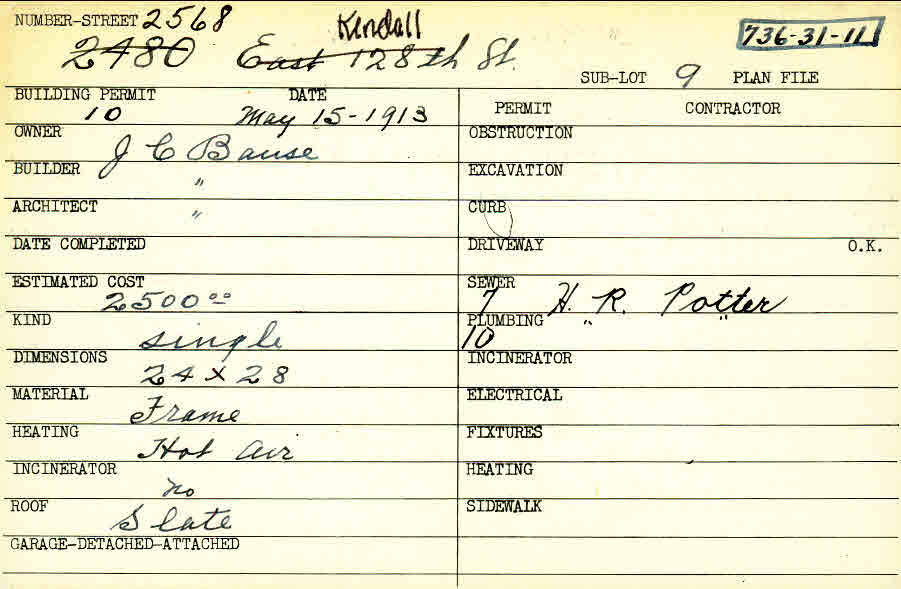 NUMBER-STREET 2568 Kendall
2480 East 128th St. 736-31-11
SUB-LOT 9 PLAN FILE
BUILDING PERMIT DATE
10 May 15-1913
PERMIT CONTRACTOR
OWNER J C Bause
OBSTRUCTION
BUILDER "
EXCAVATION
ARCHITECT "
CURB
DATE COMPLETED
DRIVEWAY O.K.
ESTIMATED COST
2500.00
SEWER
7 H. R. Potter
KIND
single
PLUMBING " "
10
DIMENSIONS
24 x 28
INCINERATOR
MATERIAL
Frame
ELECTRICAL
HEATING
Hot air
FIXTURES
INCINERATOR
no
HEATING
ROOF
Slate
SIDEWALK
GARAGE-DETACHED-ATTACHED